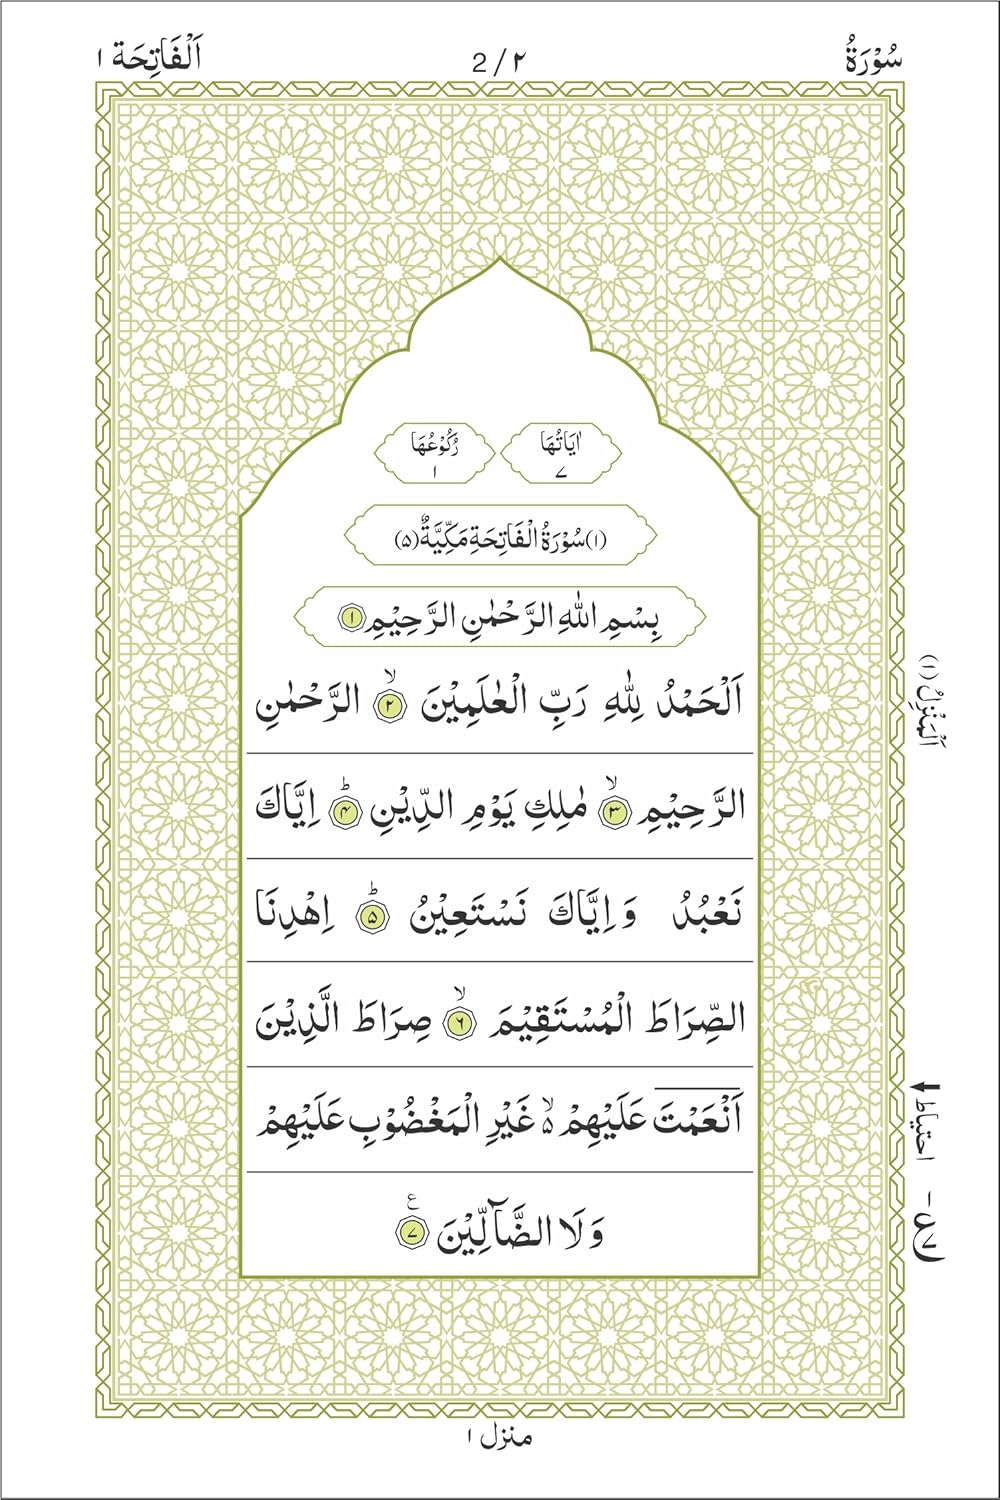 سُوْرَةُ
2/٢
اَلْفَاتِحَة ١
اٰيَاتُهَا
٧
رُكُوْعُهَا
١
(١) سُوْرَةُ الْفَاتِحَةِ مَكِّيَّةٌ (٥)
بِسْمِ اللّٰهِ الرَّحْمٰنِ الرَّحِيْمِ ١
اَلْحَمْدُ لِلّٰهِ رَبِّ الْعٰلَمِيْنَ ۙ ٢ الرَّحْمٰنِ
الرَّحِيْمِ ۙ ٣ مٰلِكِ يَوْمِ الدِّيْنِ ؕ ۴ اِيَّاكَ
نَعْبُدُ وَاِيَّاكَ نَسْتَعِيْنُ ؕ ۵ اِهْدِنَا
الصِّرَاطَ الْمُسْتَقِيْمَ ۙ ۶ صِرَاطَ الَّذِيْنَ
اَنْعَمْتَ عَلَيْهِمْ ۙ۵ غَيْرِ الْمَغْضُوْبِ عَلَيْهِمْ
وَلَا الضَّآلِّيْنَ ع ٧
اَلْمَنْزِلُ (١)
احتياط
ع ٧
منزل ١